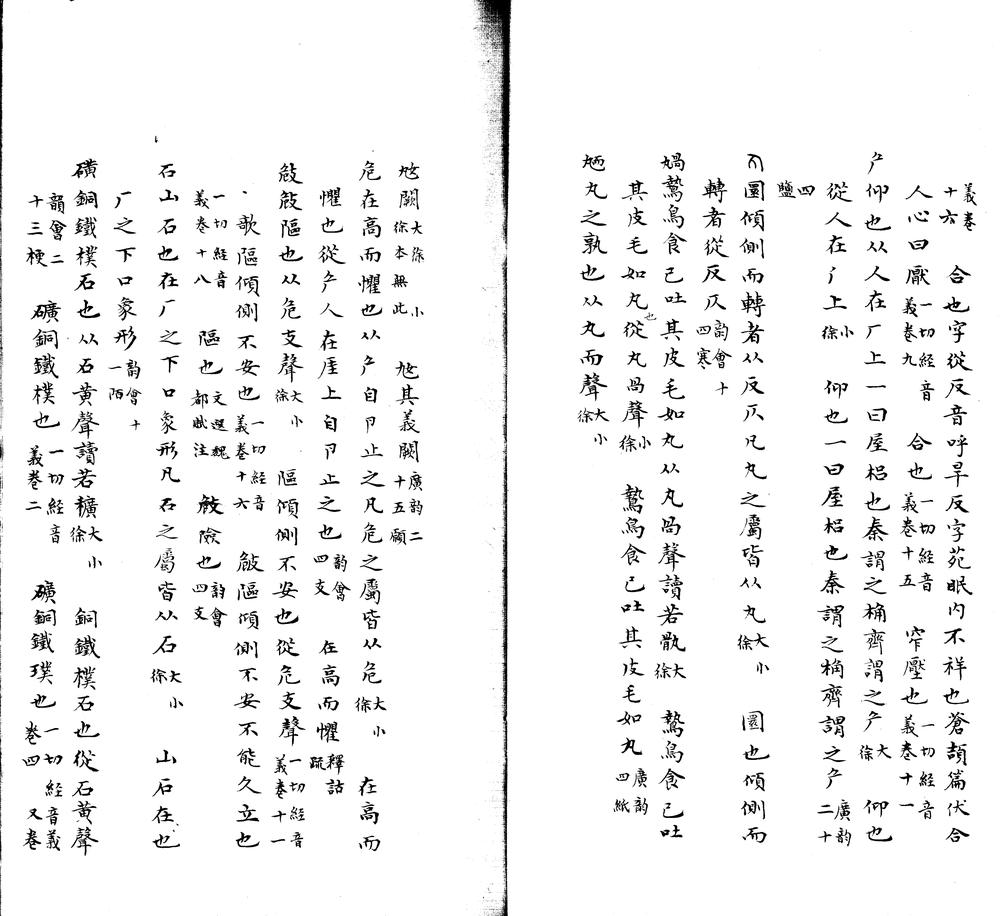 義卷十六 合也字從反音呼旱反字苑眠内不祥也蒼頡篇伏合
人心曰厭一切經音義卷九 合也一切經音義卷十五 窄壓也一切經音義卷十一
厃仰也从人在厂上一曰屋梠也秦謂之桷齊謂之厃大徐 仰也
從人在厂上小徐 仰也一曰屋梠也秦謂之桷齊謂之厃廣韵二十
四鹽
圜傾側而轉者从反仄凡丸之屬皆从丸大徐小 圜也傾側而
轉者從反仄韵會十四寒
䳏鷙鳥食已吐其皮毛如丸从丸咼聲讀若骫大徐 鷙鳥食已吐
其皮毛如丸也從丸咼聲小徐 鷙鳥食已吐其皮毛如丸廣韵四紙
丸之孰也从丸而聲大徐小
闕大徐本無此小 其義闕廣韵二十五願
危在高而懼也从厃自卪止之凡危之屬皆从危大徐小 在高而
懼也從厃人在厓上自卪止之也韵會四支 在高而懼釋詁疏
㩻㩻䧢也从危支聲大徐小 䧢傾側不安也從危支聲一切經音義卷十一
歌䧢傾側不安也一切經音義卷十六 㩻䧢傾側不安不能久立也
一切經音義卷十八 䧢也文選魏都賦注 㩻險也韵會四支
石山石也在厂之下口象形凡石之屬皆从石大徐小 山石在也
厂之下口象形韵會十一陌
磺銅鐵樸石也从石黄聲讀若穬大徐小 銅鐵樸石也從石黄聲
韻會二十三梗 礦銅鐵樸也一切經音義卷二 礦銅鐵璞也一切經音義卷四又卷